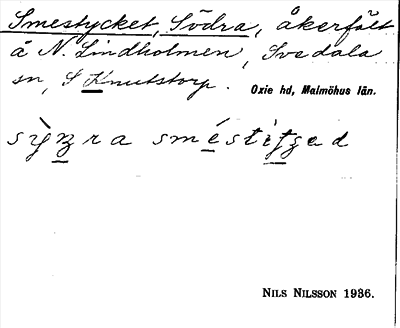 Smestycket, Södra, åkerfält
å N. Lindholmen, Svedala
sn, S Knutstorp. Oxie hd, Malmöhus län.
NILS NILSSON 1936.